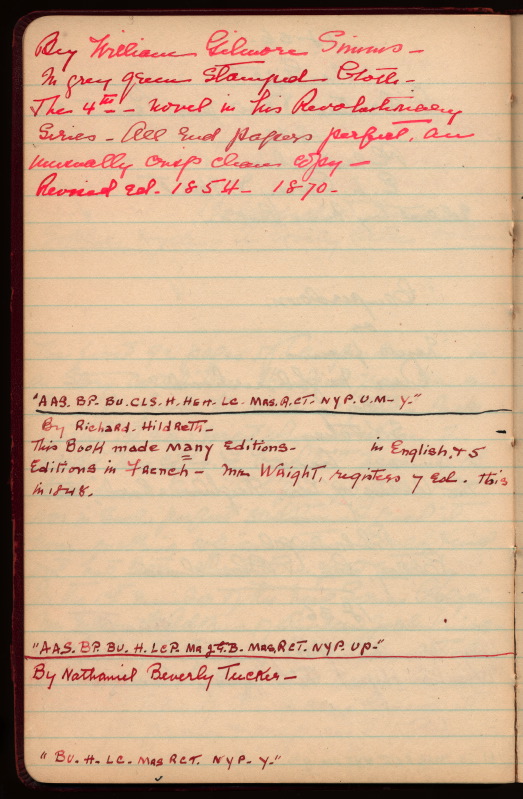 By William Gilmore Simms -
In grey green Stamped Cloth -
The 4th - novel in his Revolutionary
Series - All End papers perfect, an
unusually crisp clean copy -
Revised ed. 1854 - 1870 -
"AAS. BP. BU. CLS. H. HEH. LC. MAS. R.CT. NYP. U.M - Y."
By Richard Hildreth -
This Book made many Editions - in English, + 5
Editions in French - Wright, registers 7 Ed. this
in 1848.
"AAS. BP. BU. H. LCP. MAS, R.CT. NYP. UP -"
By Nathaniel Beverly Tucker -
"BU. H. LC. MAS RCT. NYP - Y."